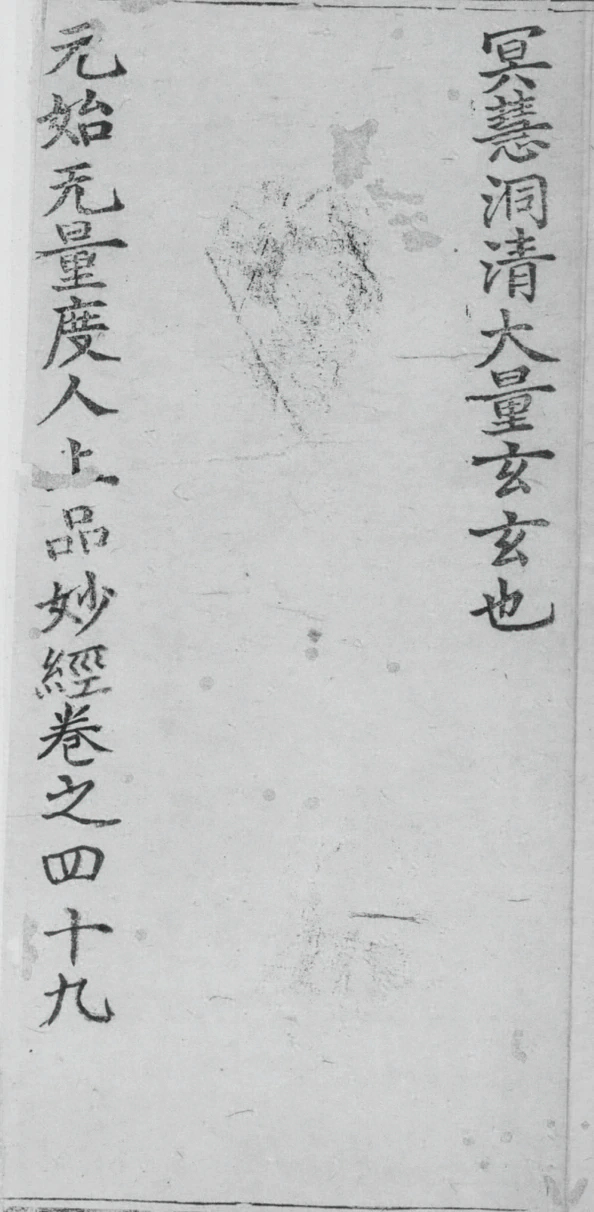 冥慧洞清大量玄玄也
元始无量度人上品妙經卷之四十九